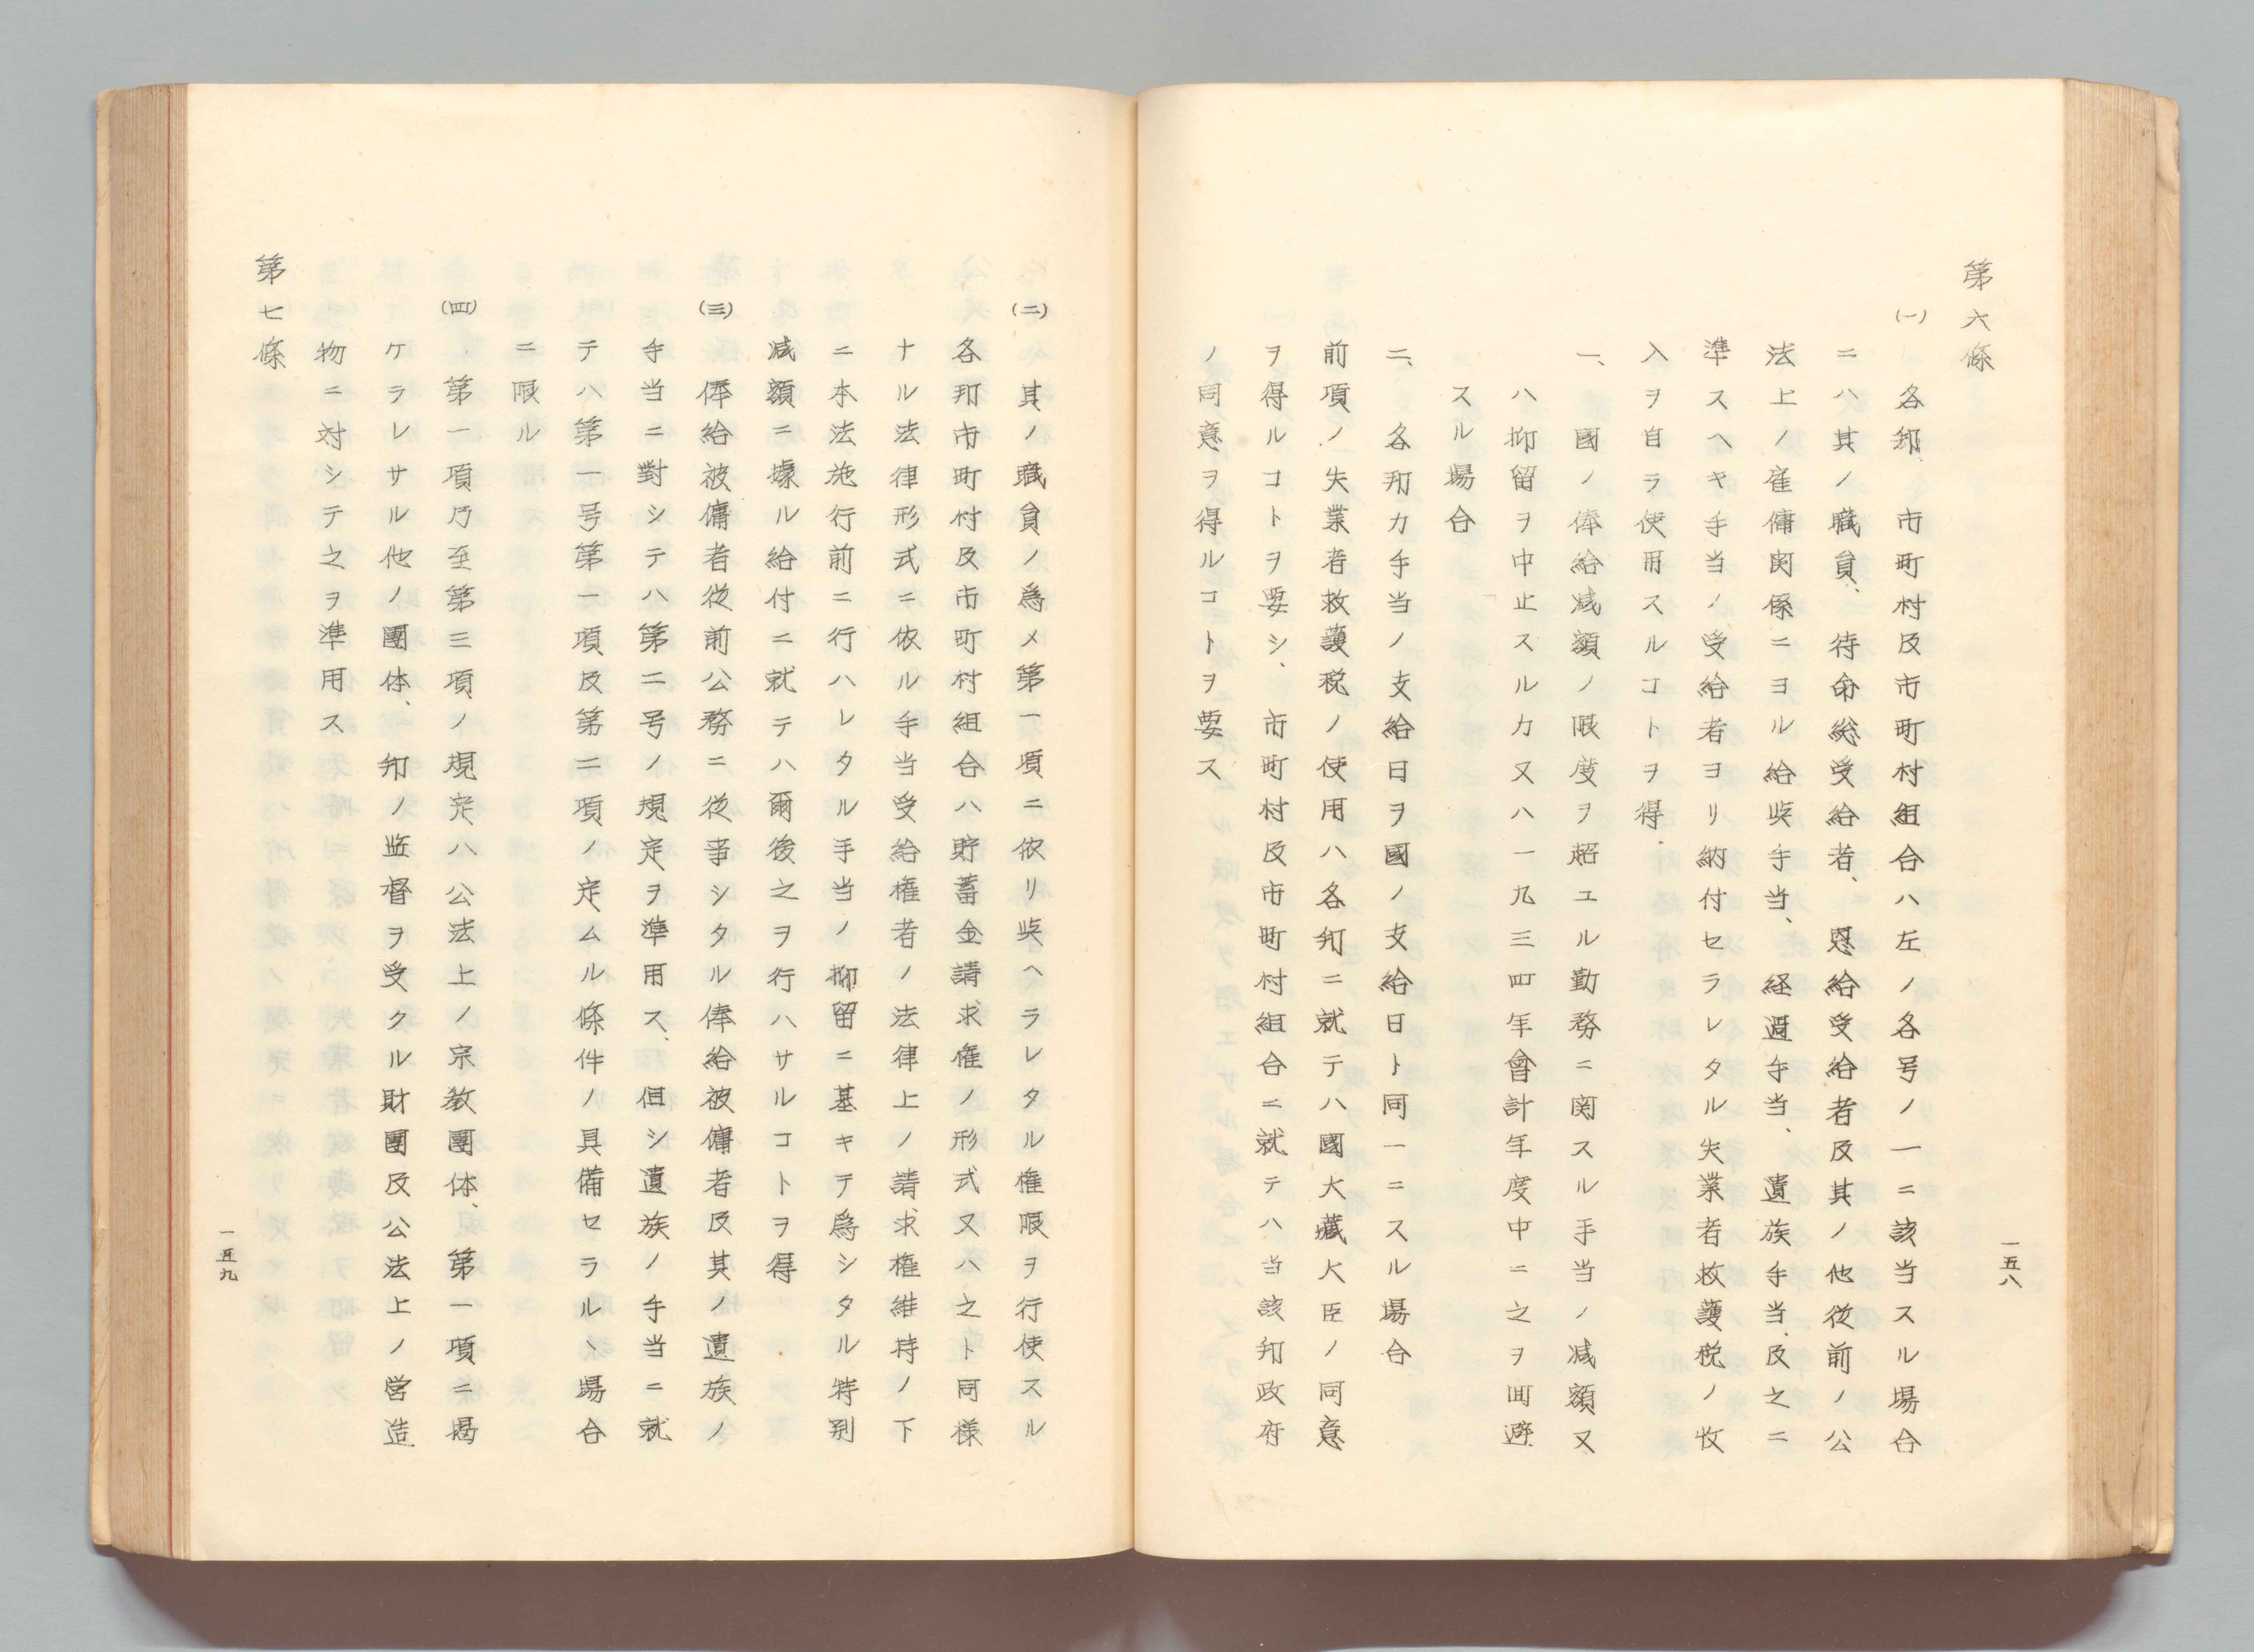 第六條
(一)　各邦、市町村及市町村組合ハ左ノ各号ノ一ニ該当スル場合
ニハ其ノ職員、待命総受給者、恩給受給者及其ノ他従前ノ公
法上ノ雇傭関係ニヨル給與手当、経過手当、遺族手当及之ニ
準スヘキ手当ノ受給者ヨリ納付セラレタル失業者救護税ノ收
入ヲ自ラ使用スルコトヲ得
一、國ノ俸給減額ノ限度ヲ超エル勤務ニ関スル手当ノ減額又
ハ抑留ヲ中止スルカ又ハ一九三四年會計年度中ニ之ヲ回避
スル場合
二、各邦カ手当ノ支給日ヲ國ノ支給日ト同一ニスル場合
前項ノ失業者救護税ノ使用ハ各邦ニ就テハ國大藏大臣ノ同意
ヲ得ルコトヲ要シ、市町村及市町村組合ニ就テハ当該邦政府
ノ同意ヲ得ルコトヲ要ス
一五八
(二)　其ノ職員ノ爲メ第一項ニ依リ與ヘラレタル権限ヲ行使スル
各邦市町村及市町村組合ハ貯蓄金請求権ノ形式又ハ之ト同様
ナル法律形式ニ依ル手当受給権者ノ法律上ノ請求権維持ノ下
ニ本法施行前ニ行ハレタル手当ノ抑留ニ基キテ爲シタル特別
減額ニ據ル給付ニ就テハ爾後之ヲ行ハサルコトヲ得
(三)　俸給被傭者従前公務ニ従事シタル俸給被傭者及其ノ遺族ノ
手当ニ對シテハ第二号ノ規定ヲ準用ス、但シ遺族ノ手当ニ就
テハ第一号第一項及第二項ノ定ムル條件ノ具備セラルヽ場合
ニ限ル
(四)　第一項乃至第三項ノ規定ハ公法上ノ宗教團体、第一項ニ曷
ケラレサル他ノ團体、邦ノ監督ヲ受クル財團及公法上ノ営造
物ニ対シテ之ヲ準用ス
第七條
一五九